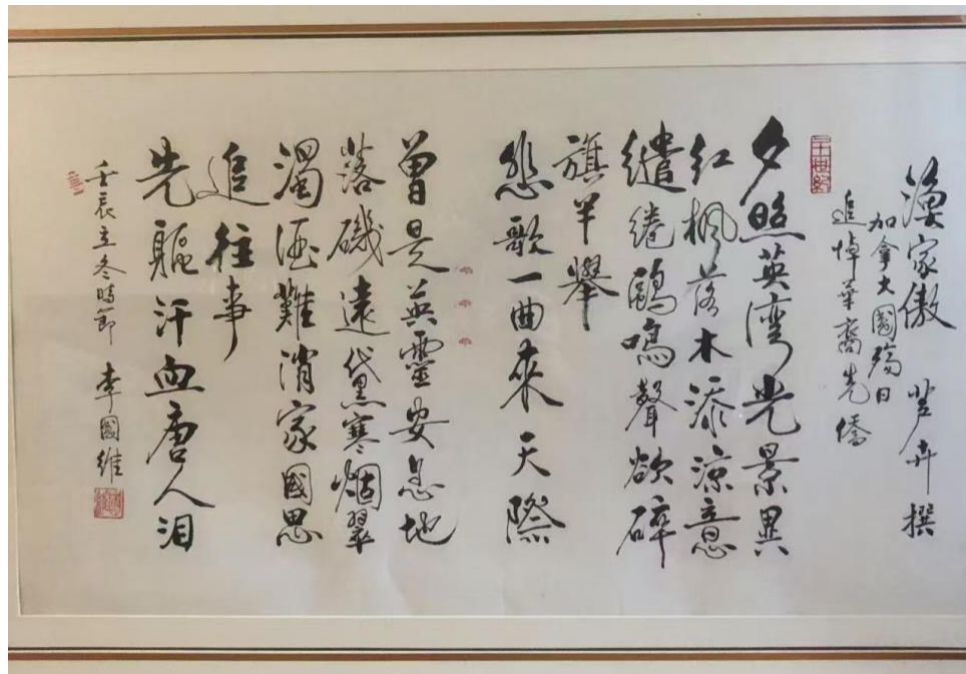 漁家傲 卉撰
加拿大國殤日
追悼華裔先僑
夕照英灣光景異
紅楓落木添涼意
繾綣鷗鳴聲欲碎
旗半舉
悲歌一曲來天際
曾是英靈安息地
落磯遠黛寒烟翠
濁酒難消家國思
追往事
先驅汗血唐人淚
壬辰立冬時節 李國維